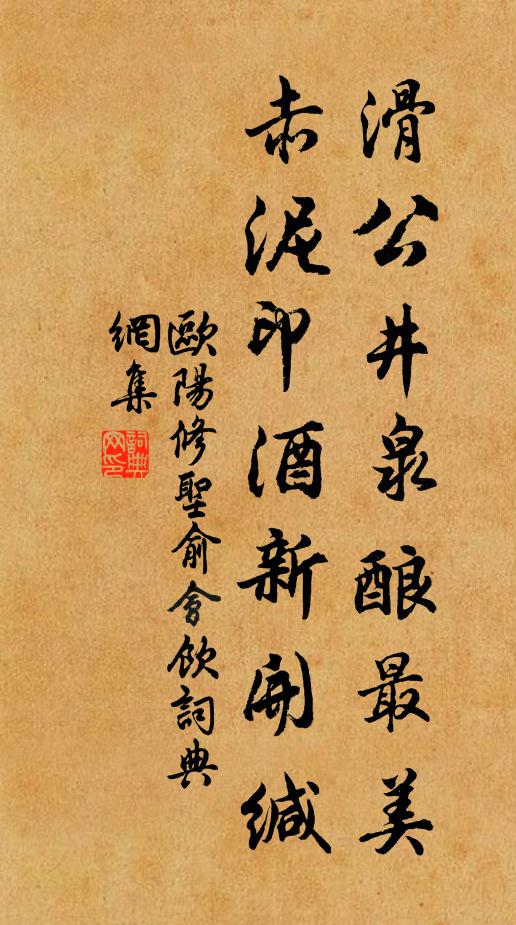 滑公井泉酿最美
赤泥印酒新開緘
歐陽修聖俞會飲詞典
網集
詞典
网印